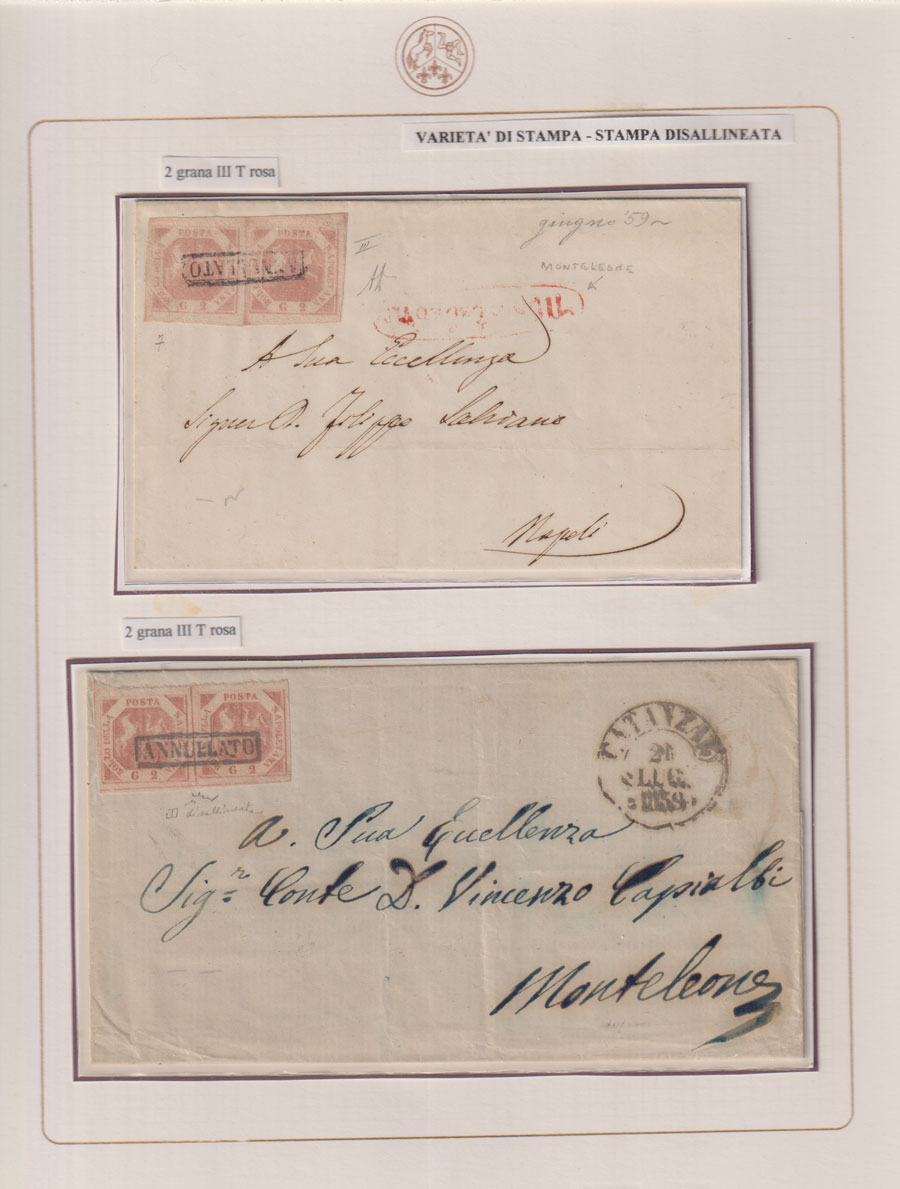 VARIETA' DI STAMPA - STAMPA DISALLINEATA
2 grana III T rosa
POSTA POSTA
ANNULLATO
G 2 G 2
III
giugno '59
MONTELEONE
A Sua Eccellenza
Signor D. Filippo
Napoli
2 grana III T rosa
POSTA POSTA
BOLLO DELLA NAPOLETANA
ANNULLATO
G 2 G 2
III disallineata
CATANZARO
21
LUG.
1859
A. Sua Eccellenza
Sigr Conte D. Vincenzo Capialbi
Monteleone